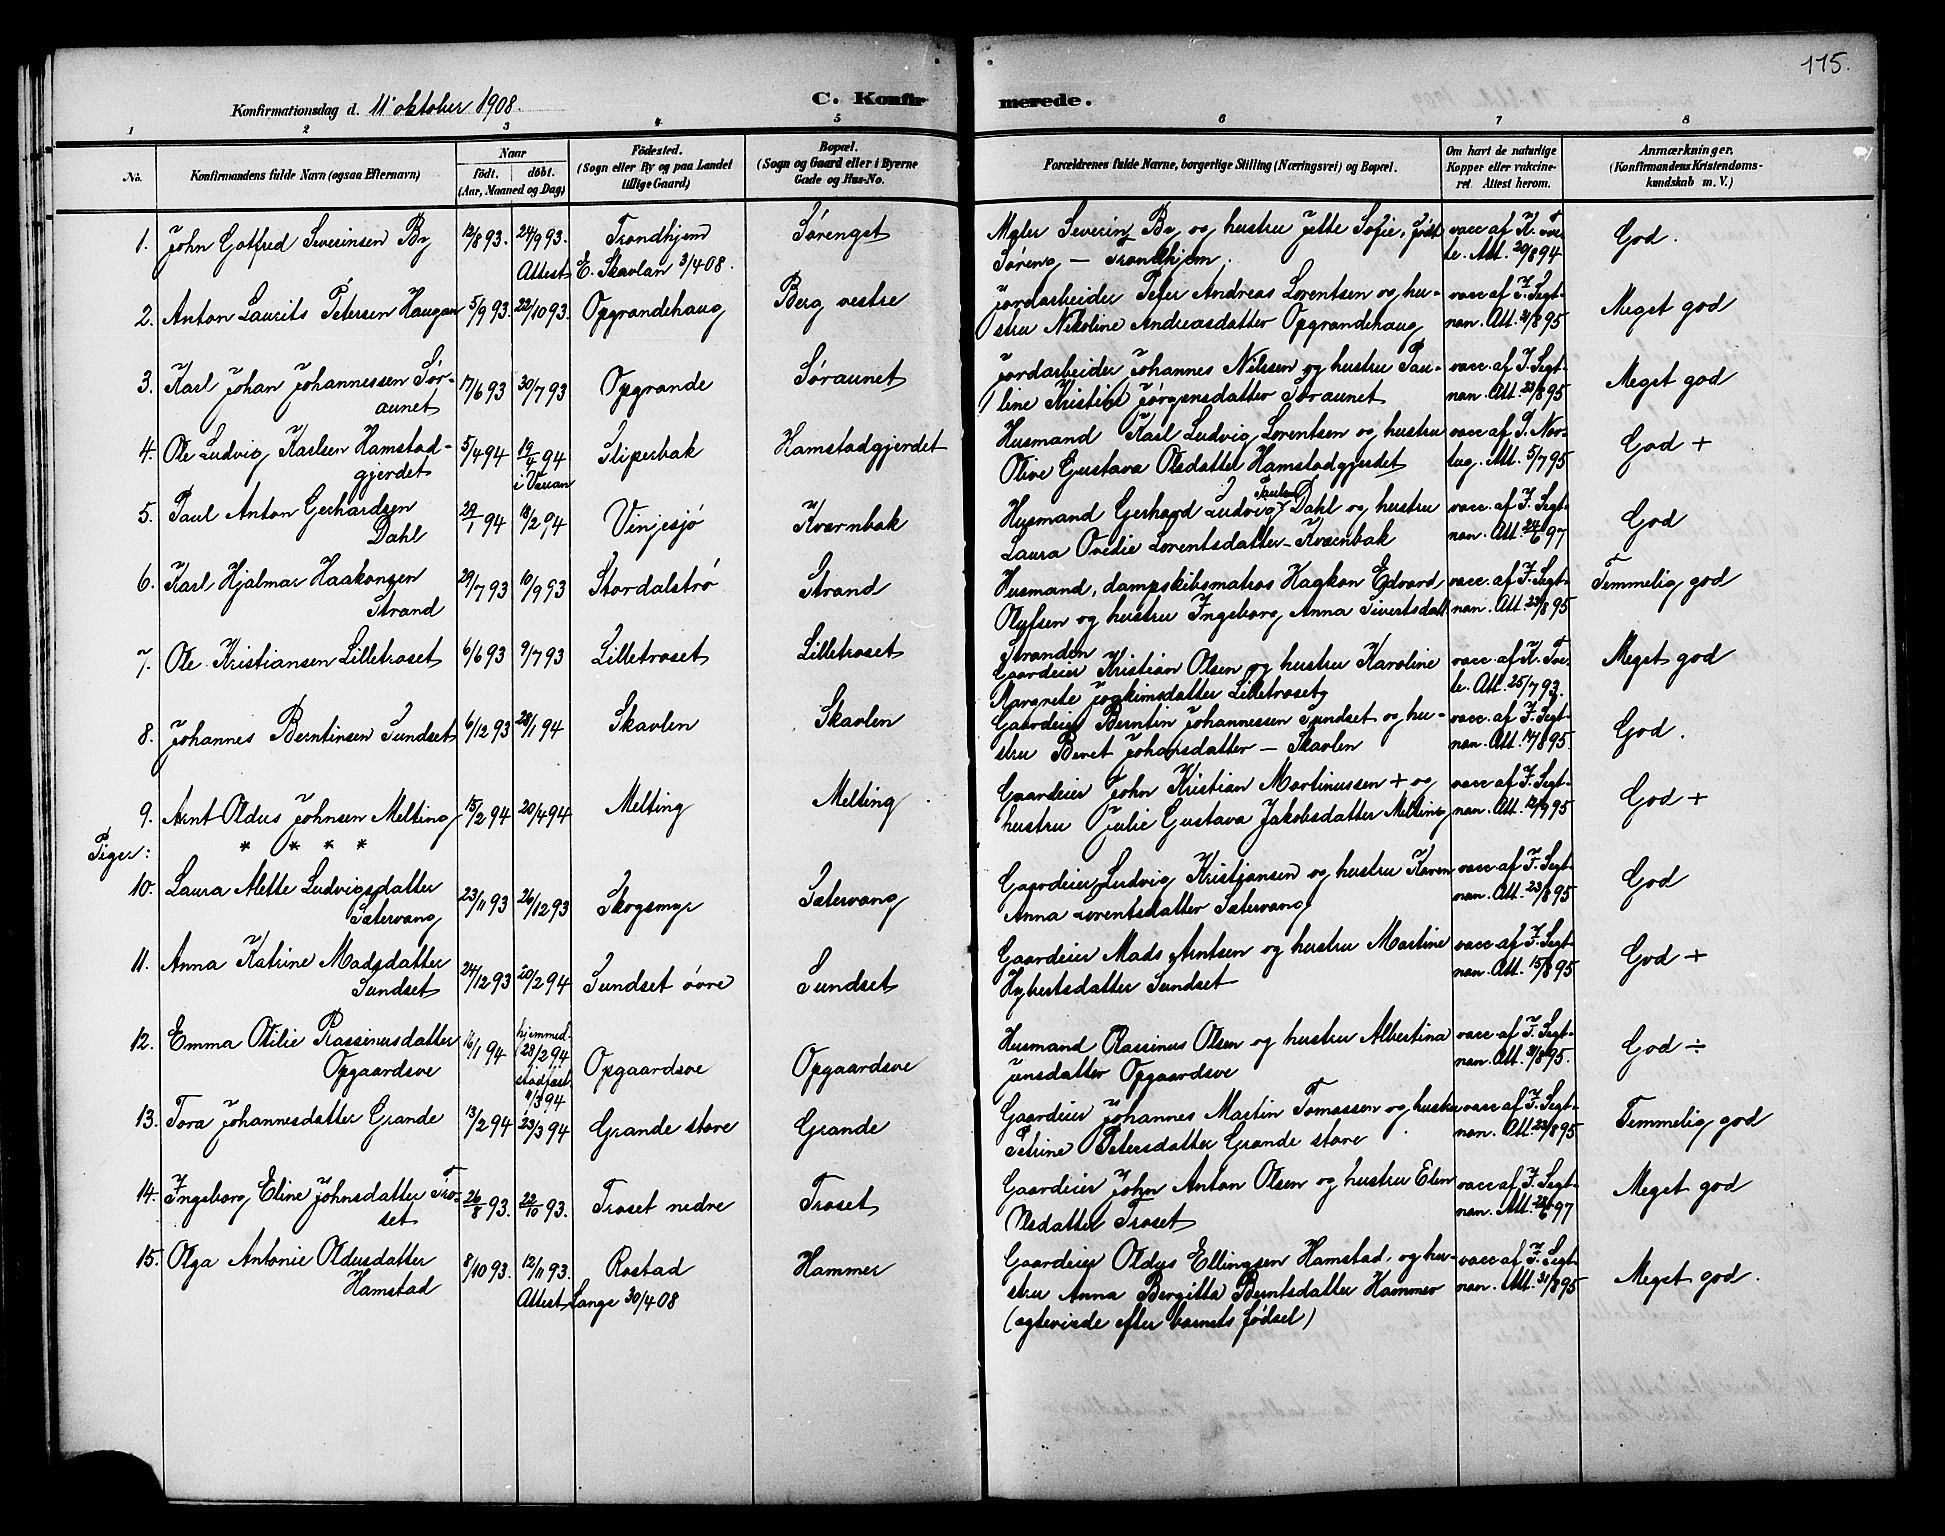 115.
Konfirmationsdag d. 11 oktober 1908.
C. Konfirmerede.
1 2 3 4 5 6 7 8
No.
Konfirmandens fulde Navn (ogsaa Efternavn)
Naar
født. døbt.
(Aar, Maaned og Dag)
Fødested.
(Sogn eller By og paa Landet
tillige Gaard)
Bopæl.
(Sogn og Gaard eller i Byerne
Gade og Hus-No.
Forældrenes fulde Navne, borgerlige Stilling (Næringsvei) og Bopæl.
Om havt de naturlige
Kopper eller vakcine-
ret. Attest herom.
Anmærkninger.
(Konfirmandens Kristendoms-
kundskab m. V.)
1. John Gotfred Severinsen By 12/8 93. 24/9 93. Trondhjem Sørenget Mgler Severin By og hustru Jette Sofie, født vacc af K. Tve- God.
Attest E. Skavlan 3/4 08. Søreng – Trondhjem. te. Att. 20/8 94
2. Anton Laurits Petersen Haugan 5/9 93. 22/10 93. Opgrandehaug Berg vestre Jordarbeider Peter Andreas Lorentsen og hu- vacc af F. Segt- Meget god
stru Nikoline Andreasdatter Opgrandehaug nan. Att. 21/8 95
3. Karl Johan Johannessen Sør- 17/6 93 30/7 93 Opgrande Søraunet Jordarbeider Johannes Nilssen og hustru Pau- vacc. af F. Segt- Meget god
aunet line Kristine Jørgensdatter Søraunet nan. Att. 23/8 95
4. Ole Ludvig Karlsen Hamstad- 5/4 94 19/4 94 Sliperbak Hamstadgjerdet Husmand Karl Ludvig Lorentsen og hustru vacc af P. Nor- God +
gjerdet i Væran Olive Gustava Olsdatter Hamstadgjerdet tug. Att. 5/7 95
5. Paul Anton Gerhardsen 29/1 94 18/2 94 Vinjesjø Kvernbak Husmand Gerhard Ludvig Paulsen Dahl og hustru vacc. af F. Segt- God
Dahl Laura Ovedie Lorentsdatter – Kvernbak nan. Att. 24/6 97
6. Karl Hjalmar Haakonsen 29/7 93 10/9 93 Stordalstrø Strand Husmand, dampskibsmatros Haakon Edvard vacc. af F. Segt- Temmelig god
Strand Olufsen og hustru Ingeborg Anna Sivertsdatt. nan. Att. 23/8 95
Stranden
7. Ole Kristiansen Lilletroset 6/6 93 9/7 93 Lilletroset Lilletroset Gaardeier Kristian Olsen og hustru Karoline vacc. af K. Tve- Meget god
Margrete Joakimsdatter Lilletroset te. Att. 25/7 93.
8. Johannes Berntinsen Sundset 6/12 93 28/1 94 Skavlen Skavlen Gaardeier Berntin Johannessen Sundset og hu- vacc. af F. Segt- God.
stru Beret Johansdatter – Skavlen nan. Att. 14/8 95.
9. Arnt Oldus Johnsen Melting 15/2 94 20/4 94 Melting Melting Gaardeier John Kristian Martinussen + og vacc af F. Segt- God +
hustru Julie Gustava Jakobsdatter Melting nan. Att. 12/9 95
Piger: * * * *
10. Laura Mette Ludvigsdatter 23/11 93 26/12 93 Skogsmyr Sætervang Gaardeier Ludvig Kristjansen og hustru Karen vacc af F. Segt- God
Sætervang Anna Lorentsdatter Sætervang nan. Att. 23/8 95
11. Anna Katrine Madsdatter 24/12 93 20/2 94 Sundset øvre Sundset Gaardeier Mads Arntsen og hustru Martine vacc af F. Segt- God +
Sundset Hybertsdatter Sundset nan. Att. 15/8 95
12. Emma Otilie Rassinusdatter 16/1 94 hjemmed. 23/2 94 Opgaardsve Opgaardsve Husmand Rassinus Olsen og hustru Albertina vacc. af F. Segt- God ÷
Opgaardsve stadfæst. 11/3 94 Jensdatter Opgaardsve nan. Att. 21/8 95.
13. Tora Johannesdatter Grande 13/2 94 23/3 94 Grande store Grande Gaardeier Johannes Martin Tomassen og hustru vacc. af F. Segt- Temmelig god
Petrine Petersdatter Grande store nan. Att. 22/8 95
14. Ingeborg Eline Johnsdatter Tro- 26/8 93. 22/10 93. Troset nedre Troset Gaardeier John Anton Olsen og hustru Elen vacc. af F. Segt- Meget god
set Olsdatter Troset nan. Att. 23/6 97
15. Olga Antonie Oldusdatter 8/10 93. 12/11 93. Rostad Hammer Gaardeier Oldus Ellingsen Hamstad, og hu- vacc. af F. Segt- Meget god.
Hamstad Attest Lange 30/4 08 stru Anna Bergitta Berntsdatter Hammer nan. Att. 31/8 95
(egteviede efter barnets fødsel)